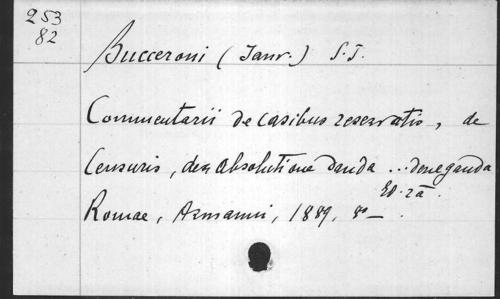 253
82
Bucceroni (Janr.) S.J.
Commentarii de casibus reservatis, de
Censuris, de Absolutione danda ... deneganda
Ed. 2a.
Romae, Armanni, 1889, 8º